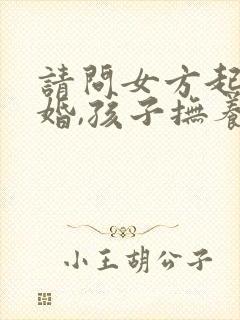 請問女方起
婚,孩子撫養
小王胡公子